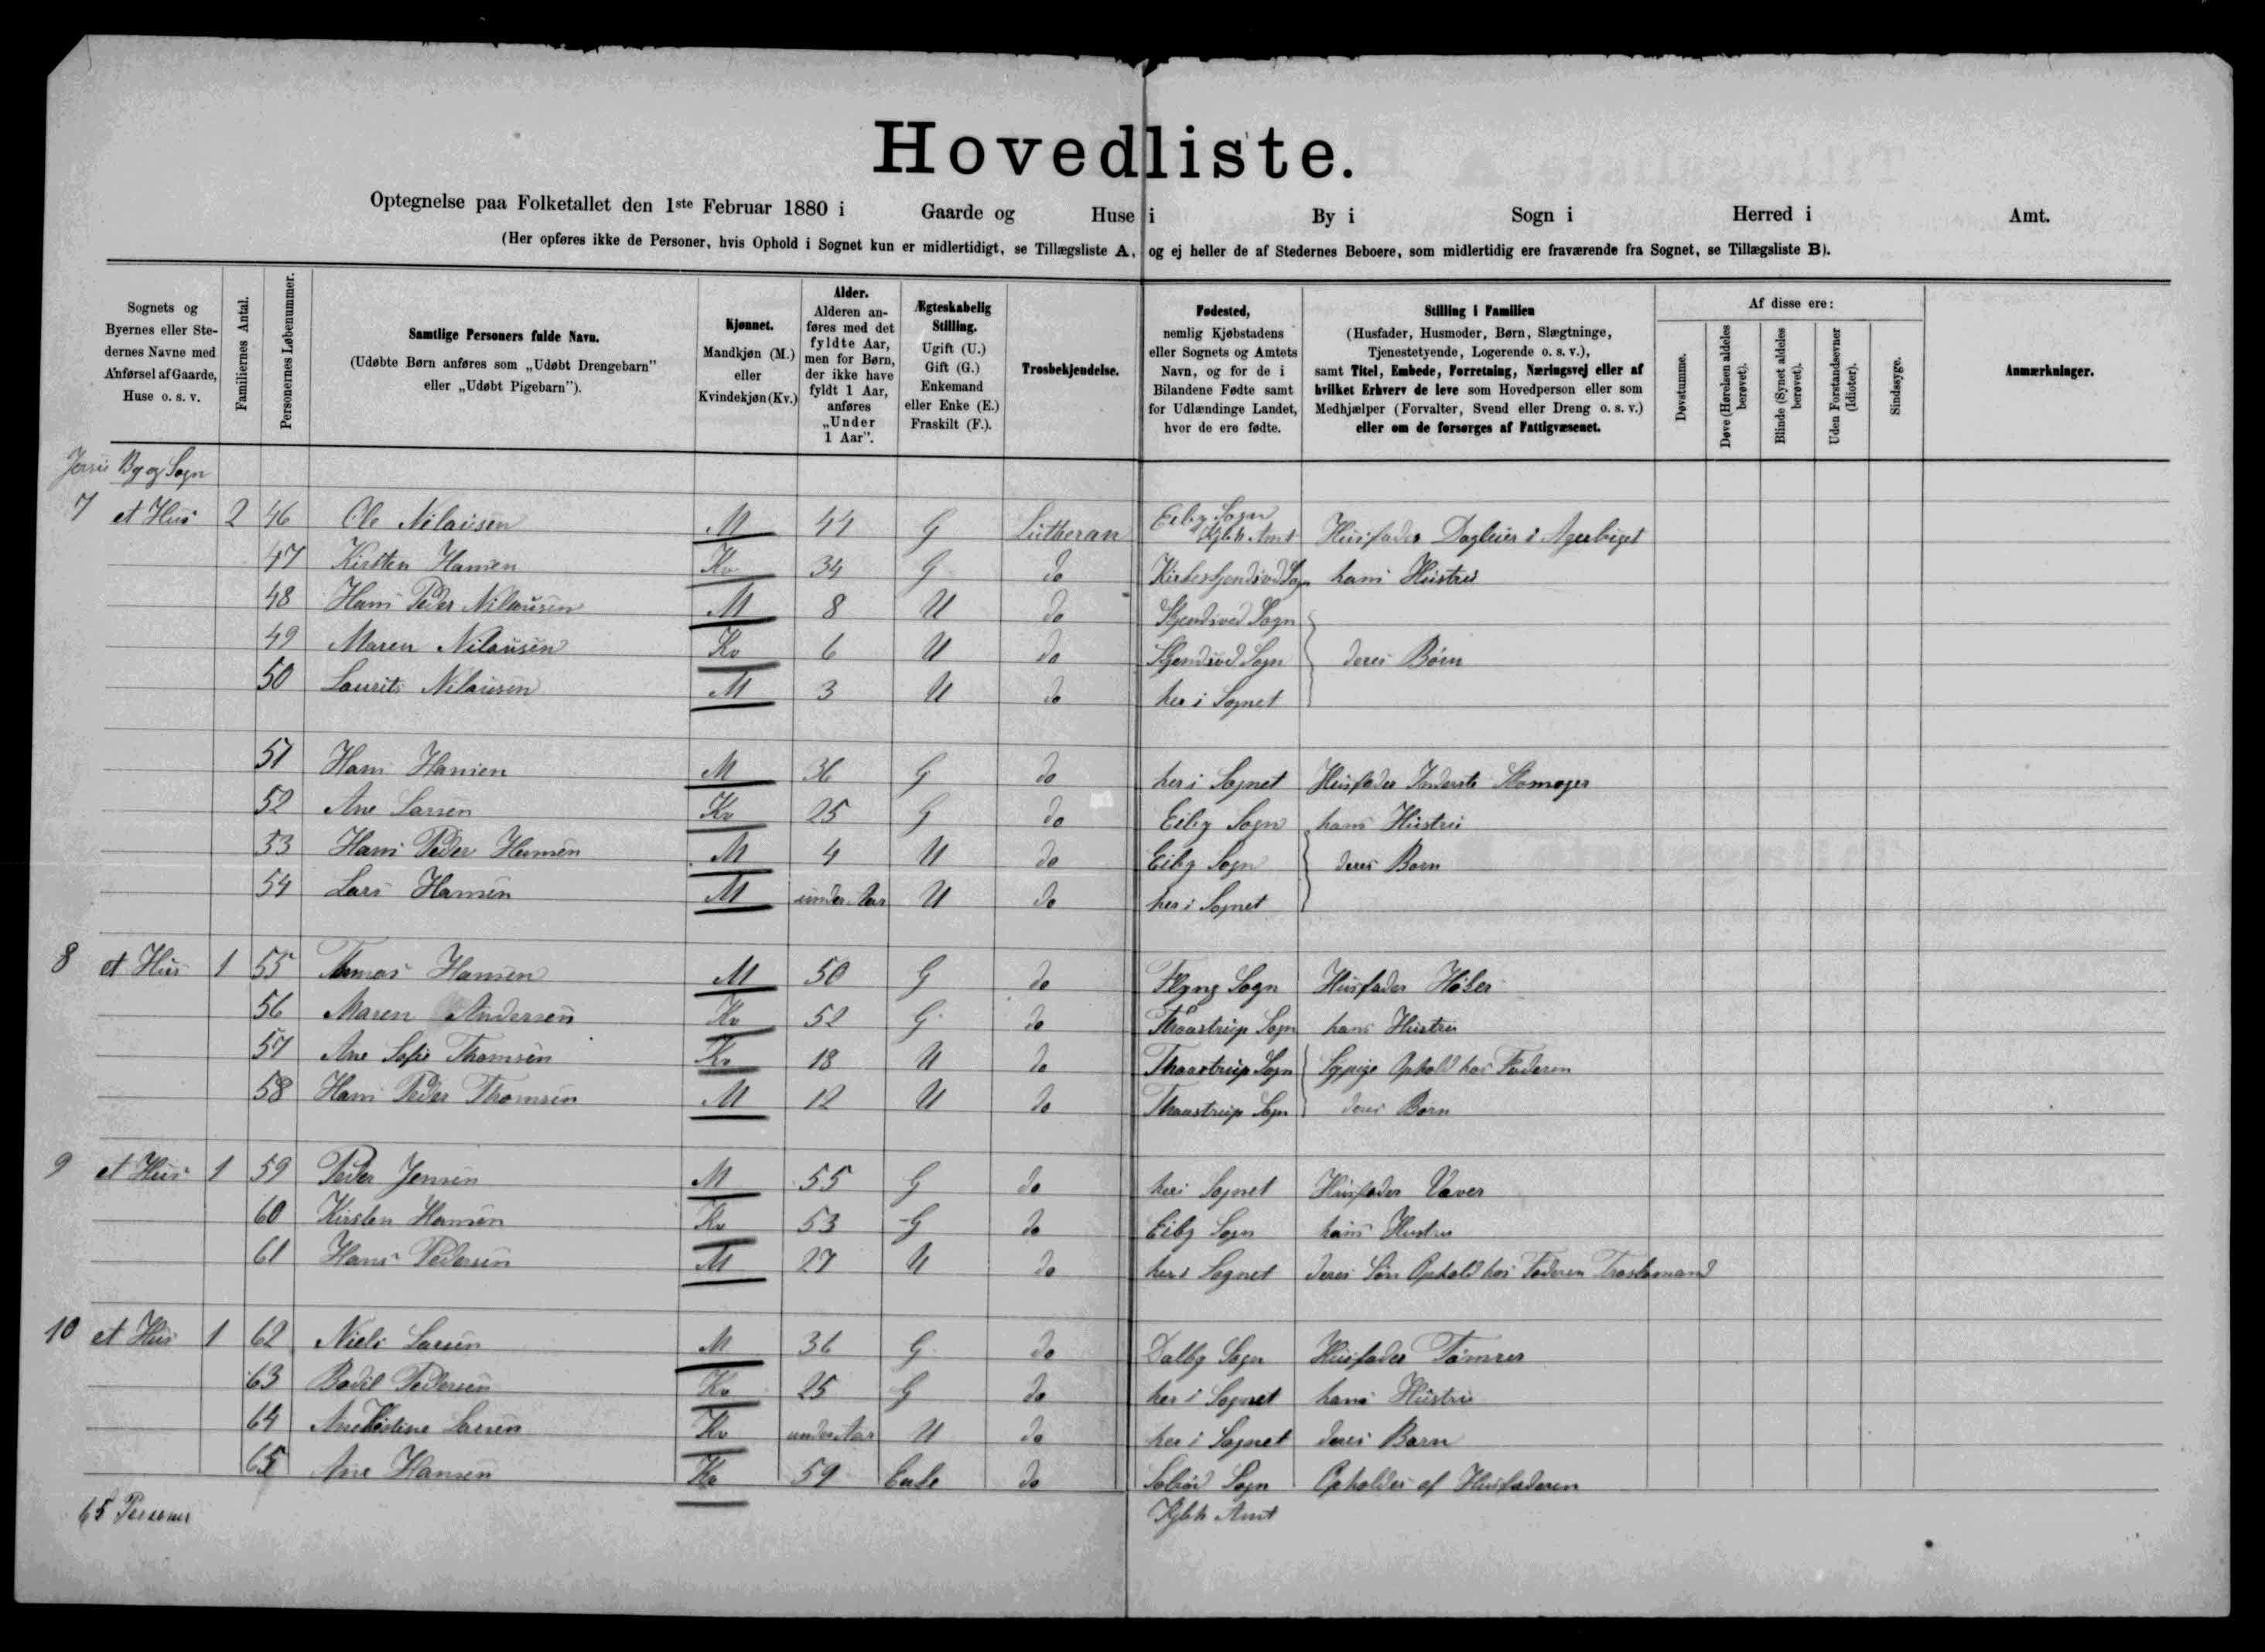 Hovedliste.
Optegnelse paa Folketallet den 1ste Februar 1880 i Gaarde og Huse i By i Sogn i Herred i Amt.
(Her opføres ikke de Personer, hvis Ophold i Sognet kun er midlertidigt, se Tillægsliste A, og ej heller de af Stedernes Beboere, som midlertidig ere fraværende fra Sognet, se Tillægsliste B).
Sognets og
Byernes eller Ste-
dernes Navne med
Anførsel af Gaarde,
Huse o. s. v.
Familiernes Antal.
Personernes Løbenummer.
Samtlige Personers fulde Navn.
(Udøbte Børn anføres som „Udøbt Drengebarn"
eller „Udøbt Pigebarn").
Kjønnet.
Mandkjøn (M.)
eller
Kvindekjøn (Kv.)
Alder.
Alderen an-
føres med det
fyldte Aar,
men for Børn,
der ikke have
fyldt 1 Aar,
anføres
„Under
1 Aar".
Ægteskabelig
Stilling.
Ugift (U.)
Gift (G.)
Enkemand
eller Enke (E.)
Fraskilt (F.).
Trosbekjendelse.
Fødested,
nemlig Kjøbstadens
eller Sognets og Amtets
Navn, og for de i
Bilandene Fødte samt
for Udlændinge Landet,
hvor de ere fødte.
Stilling i Familien
(Husfader, Husmoder, Børn, Slægtninge,
Tjenestetyende, Logerende o. s. v.),
samt Titel, Embede, Forretning, Næringsvej eller af
hvilket Erhverv de leve som Hovedperson eller som
Medhjælper (Forvalter, Svend eller Dreng o. s. v.)
eller om de forsørges af Fattigvæsenet.
Af disse ere:
Døvstumme.
Døve (Hørelsen aldeles
berøvet).
Blinde (Synet aldeles
berøvet).
Uden Forstandsevner
(Idioter).
Sindssyge.
Anmærkninger.
By og Sogn
7 et Hus 2 46 Ole Nilausen M 44 G Lutheran Eiby Sogn Kjbh Amt Husfader Dagleier i Agerbruget
47 Kirsten Hansen Kv 34 G do hans Hustru
48 Hans Peder Nilausen M 8 U do Skjendsved Sogn
49 Maren Nilausen Kv 6 U do Skjendsved Sogn deres Børn
50 Laurits Nilausen M 3 U do her i Sognet
51 Hans Hansen M 36 G do her i Sognet Husfader Inderste Skomager
52 Ane Larsen Kv 25 G do Eiby Sogn hans Hustru
53 Hans Peder Hansen M 4 U do Eiby Sogn deres Børn
54 Lars Hansen M under Aar U do her i Sognet
8 et Hus 1 55 Tomas Hansen M 50 G do Flyng Sogn Husfader Høker
56 Maren Andersen Kv 52 G do Thaastrup Sogn hans Hustru
57 Ane Sofie Thomsen Kv 18 U do Thaastrup Sogn Sypige Ophold hos Faderen
58 Hans Peder Thomsen M 12 U do Thaastrup Sogn deres Børn
9 et Hus 1 59 Peder Jensen M 55 G do her i Sognet Husfader Væver
60 Kirsten Hansen Kv 53 G do Eiby Sogn hans Hustru
61 Hans Pedersen M 27 U do her i Sognet deres Søn Ophold hos Faderen
10 et Hus 1 62 Niels Larsen M 36 G do Dalby Sogn Husfader Tømrer
63 Bodil Pedersen Kv 25 G do her i Sognet hans Hustru
64 Ane Kirstine Larsen Kv under Aar U do her i Sognet deres Barn
65 Ane Hansen Kv 59 Enke do Solrød Sogn Opholdes af Husfaderen
65 Personer
Kjbh Amt